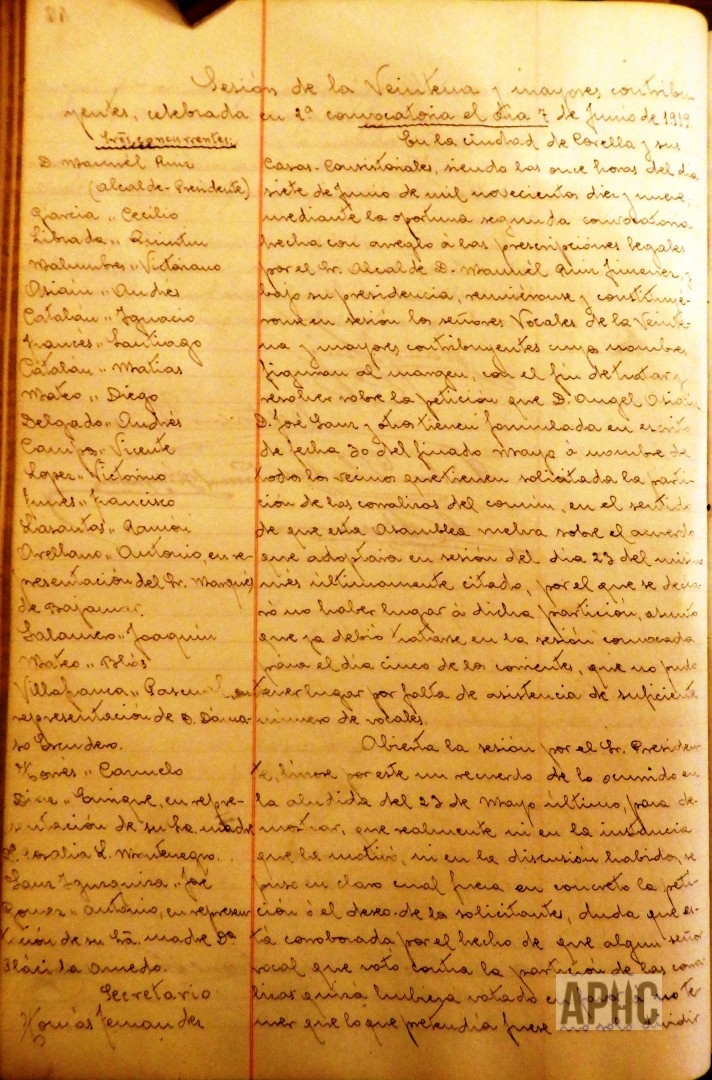 Sesión de la Veintena y mayores contribu-
yentes, celebrada en 2ª convocatoria el dia 7 de Junio de 1919
Sres concurrentes:
D. Manuel Ruiz
(alcalde-Presidente)
Garcia " Cecilio
Librada " Quintin
Malumbres " Victoriano
Osián " Andres
Catalán " Ignacio
Francés " Santiago
Catalán " Matias
Mateo " Diego
Delgado " Andrés
Campos " Vicente
Lopez " Victorino
Funes " Francisco
Lasantas " Ramón
Arellano " Antonio, en re-
presentación del Sr. Marqués
de Bajamar.
Salamero " Joaquin
Mateo " Blás
Villafranca " Pascual en
representación de D. Dáma-
so Escudero.
" Canuto
" Enrique, en repre-
sentación de su Sra. madre
Rosalia L. Montenegro.
Sanz " José
" Antonio, en represen-
tación de su Sra. madre Dª
Plácida
Secretario
Tomás Fernandez
En la ciudad de Corella y sus
Casas-Consistoriales, siendo las once horas del dia
siete de Junio de mil novecientos diez y nueve,
mediante la oportuna segunda convocatoria
hecha con arreglo á las prescripciónes legales
por el Sr. Alcalde D. Manuél Ruiz Jimenez, y
bajo su presidencia, reuniéronse y constituyé-
ronse en sesión los señores Vocales de la Veinte-
na y mayores contribuyentes cuyos nombres
figuran al margen, con el fin de tratar y
resolver sobre la petición que D. Angel Osián
D. José Sanz y otros tienen formulada en escrito
de fecha 30 del finado Mayo á nombre de
todos los vecinos que tienen solicitada la parti-
ción de las corralizas del común, en el sentido
de que esta Asamblea vuelva sobre el acuerdo
que adoptara en sesión del dia 23 del mismo
més últimamente citado, por el que se decla-
ró no haber lugar á dicha partición, asunto
que ya debió tratarse en la sesión convocada
para el dia cinco de los corrientes, que no pudo
tener lugar por falta de asistencia de suficiente
número de vocales.
Abierta la sesión por el Sr. Presiden-
te, hízose por este un recuerdo de lo ocurrido en
la aludida del 23 de Mayo último, para de-
mostrar, que realmente ni en la instancia
que la motivó, ni en la discusión habida, se
puso en claro cual fuera en concreto la peti-
ción ó el deseo de los solicitantes, duda que es-
tá corroborada por el hecho de que algun señor
vocal que votó contra la partición de las corra-
lizas quizá hubiera votado en favor á no te-
mer que lo que pretendia fuese no solo dividir
APHC